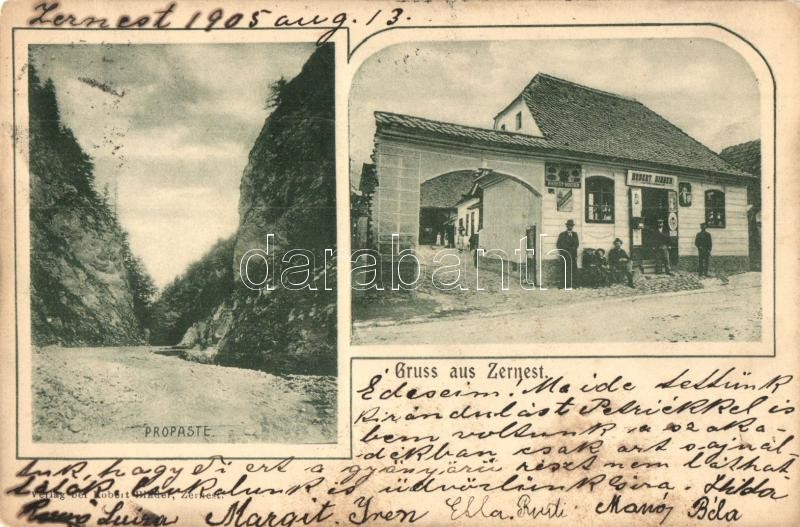 Zernest 1905 aug. 13.
ROBERT BINDER
PROPASTE.
Gruss aus Zernest.
Verlag bei Robert Binder, Zernest.
darabanth.com
Édeseim! Ma ide tettünk
kirándulást Petriékkel is
bem voltunk a szaka-
dékban csak azt sajnál-
tuk hogy Ti ezt a gyönyörű részt nem láthat-
ták. Üdvözlünk Hilda
Luiza Margit. Iren Ella. Rusti Manój Béla